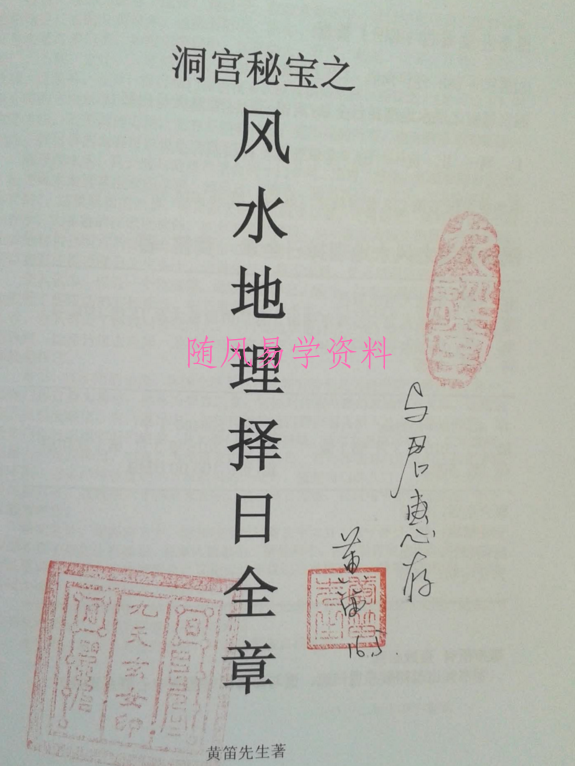 洞宫秘宝之
风水地理择日全章
随风易学资料
与君惠存
黄笛
16.5.
九天玄女印
日
月
黄笛先生著